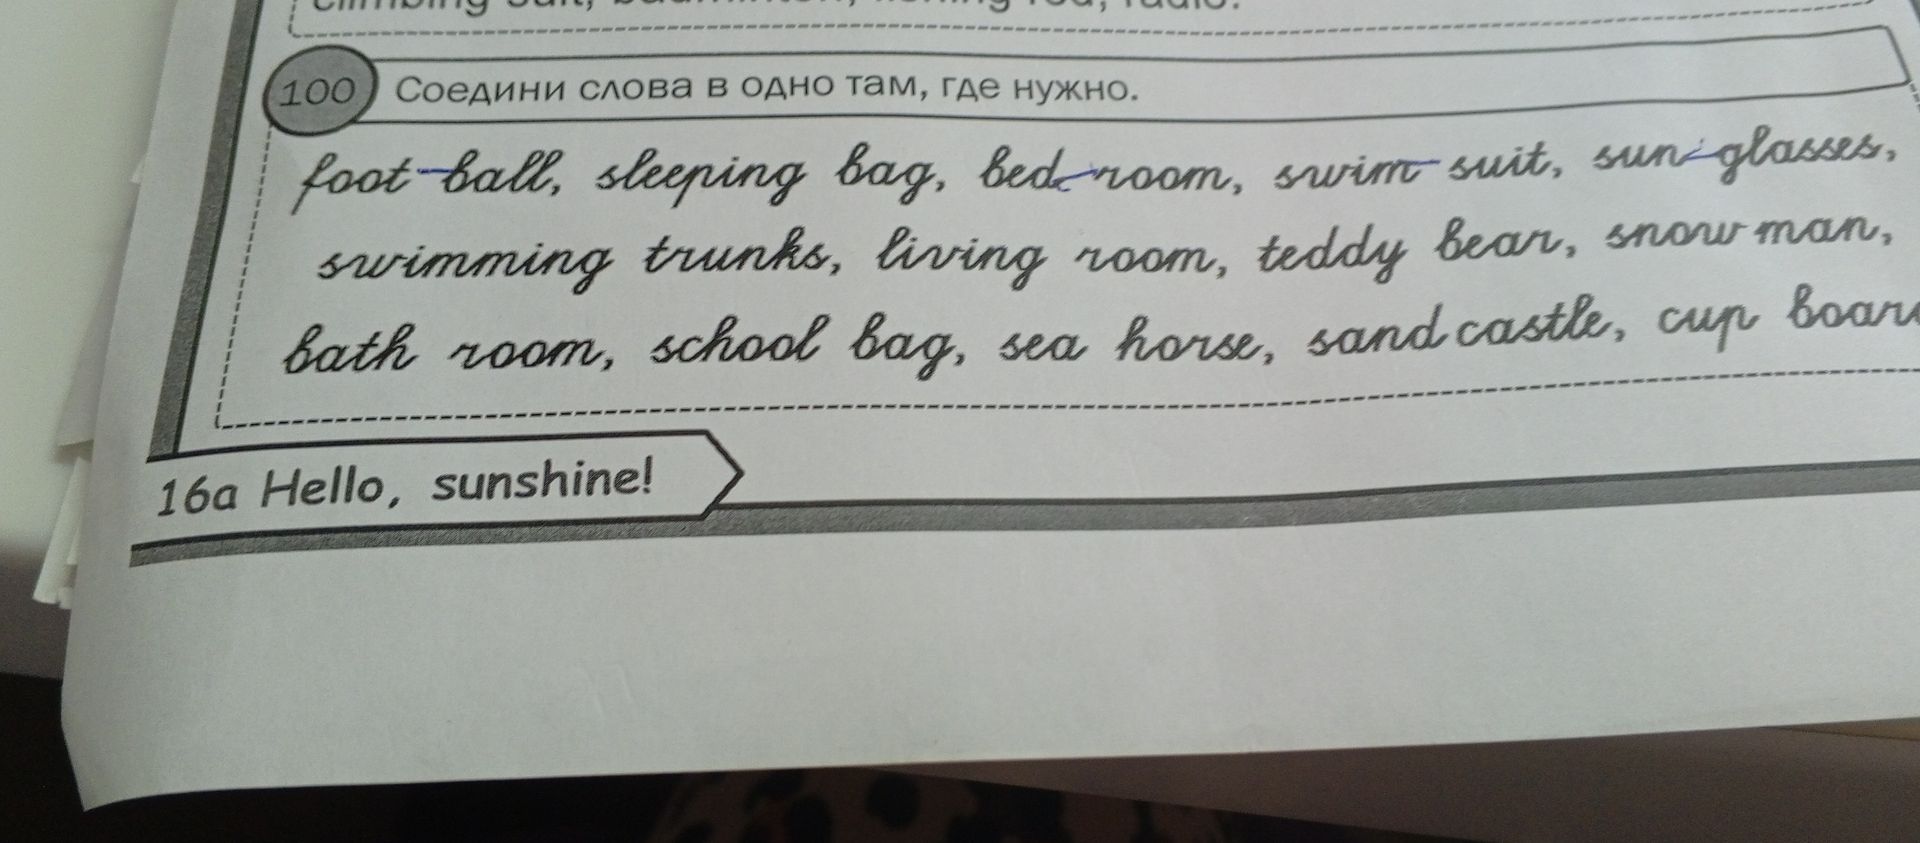 climbing suit, badminton, fishing rod, radio.
100 Соедини слова в одно там, где нужно.
foot ball, sleeping bag, bed room, swim suit, sun glasses,
swimming trunks, living room, teddy bear, snow man,
bath room, school bag, sea horse, sand castle, cup board
16a Hello, sunshine!